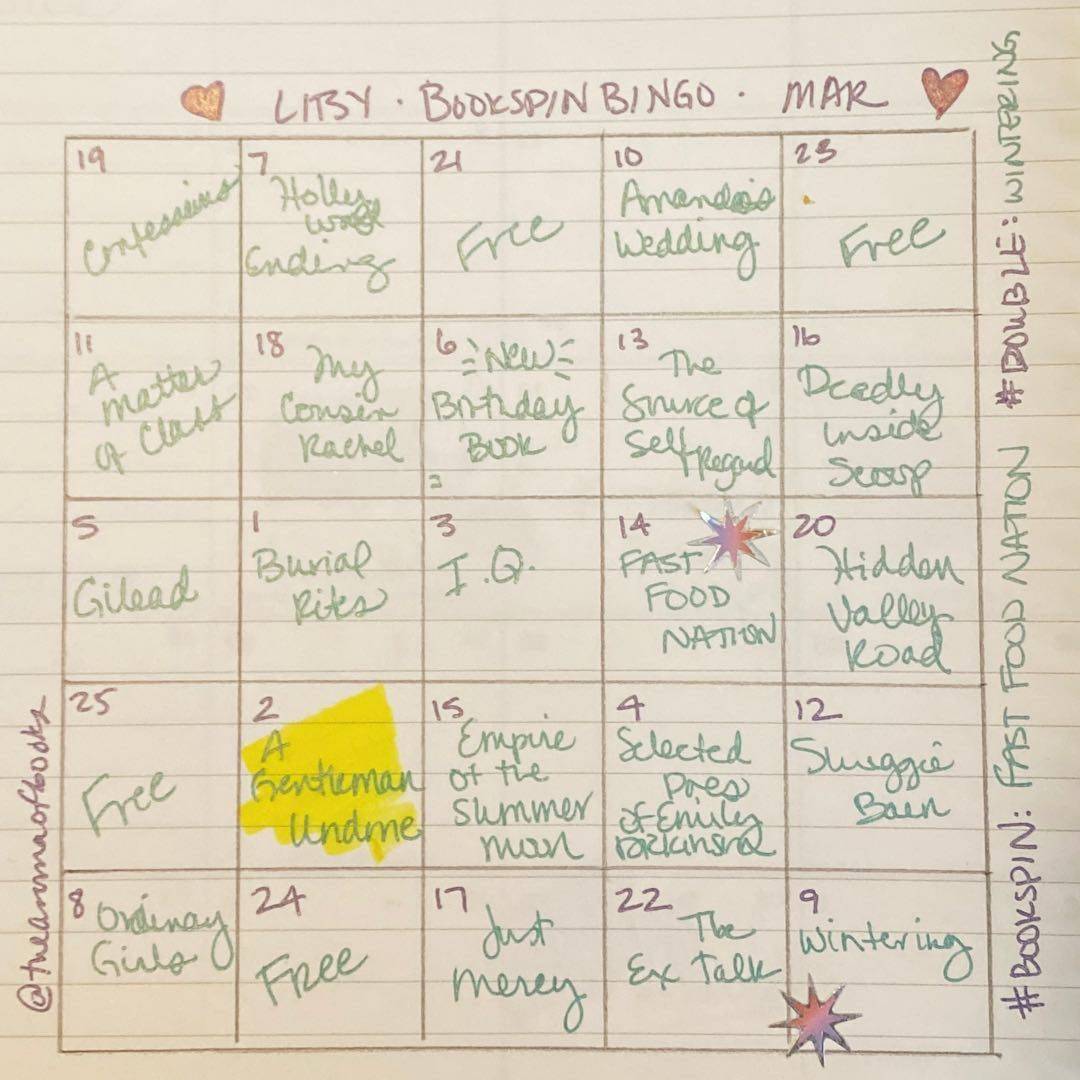 LITSY · BOOKSPINBINGO · MAR
19
Confessions
7
Holly
wood
Ending
21
Free
10
Amanda's
Wedding
23
Free
11
A
Matter
of Class
18
My
Cousin
Rachel
6
NEW
Birthday
BOOK
13
The
Source of
Self Regard
16
Deadly
Inside
Scoop
5
Gilead
1
Burial
Rites
3
I.Q.
14
FAST
FOOD
NATION
20
Hidden
Valley
Road
25
Free
2
A
Gentleman
Undone
15
Empire
of the
Summer
Moon
4
Selected
Poes
of Emily
Dickinson
12
Shuggie
Bain
8
Ordinary
Girls
24
Free
17
Just
Mercy
22
The
Ex Talk
9
Wintering
@theammaofbooks
#BOOKSPIN: FAST FOOD NATION #DOUBLE: WINTERING